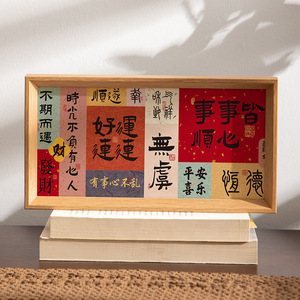 不期而遇
發財
財
時光不負有心人
順遂
好運連連
有事心不乱
無虞
皆
事心
事順
平安
喜乐
德
恆